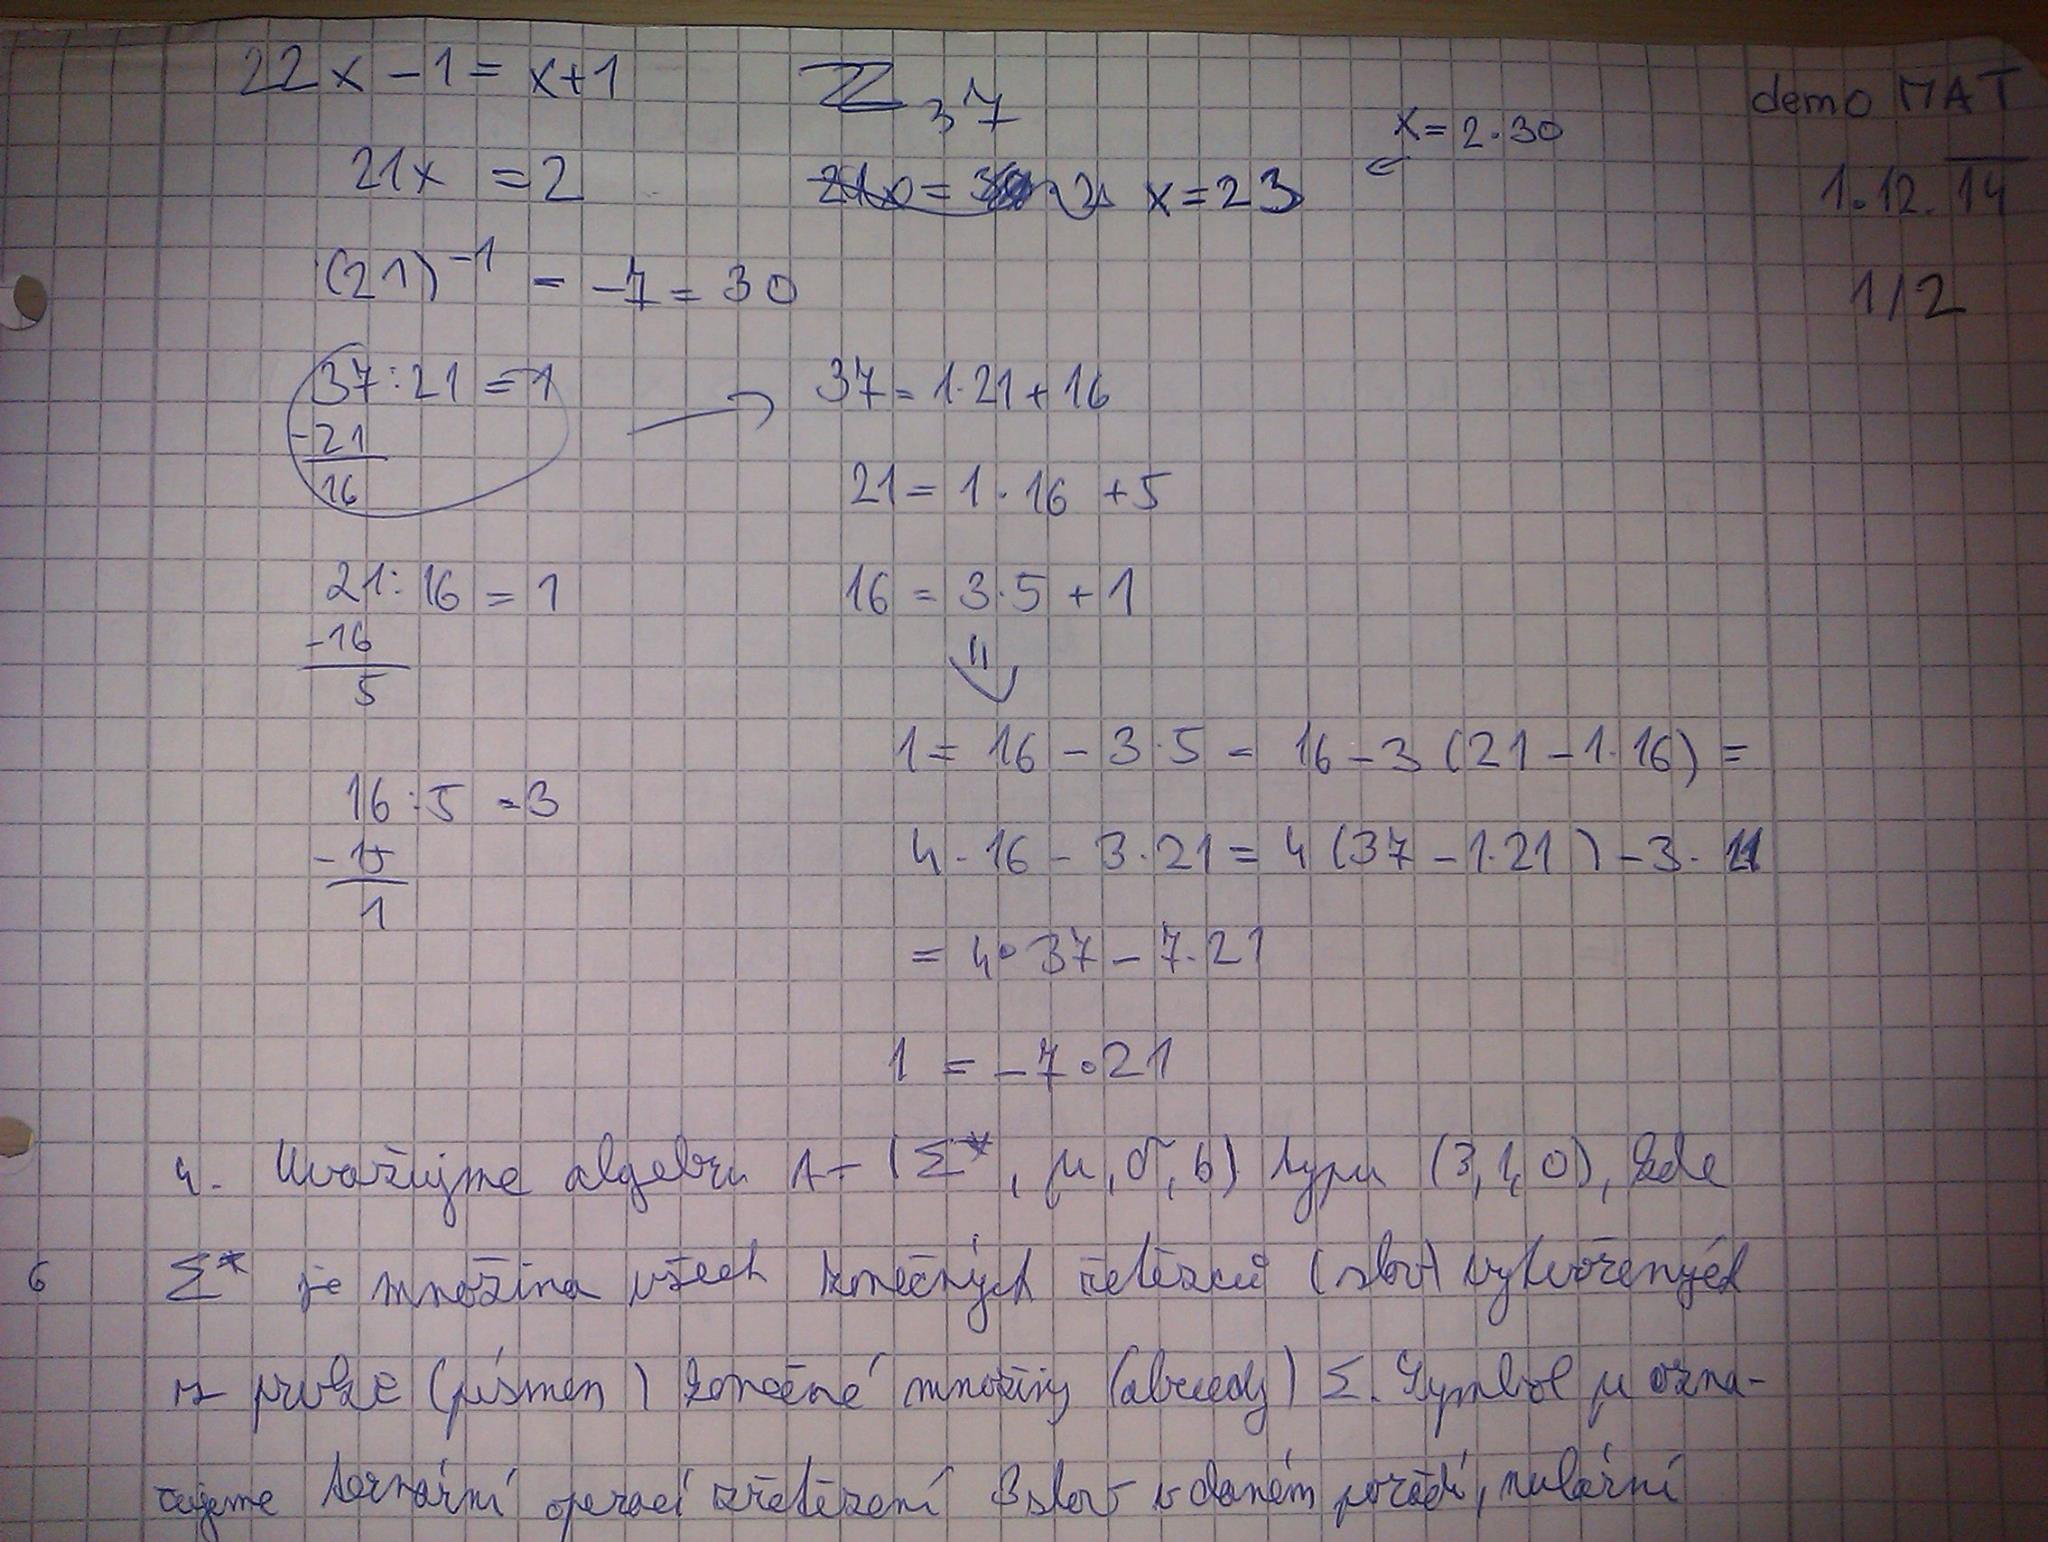 22x - 1 = x + 1    ℤ₃₇    demo MAT
x = 2 · 30
21x = 2    x = 23 ←    1. 12. 14
(21)⁻¹ = -7 = 30    1/2
37 : 21 = 1 → 37 = 1·21 + 16
-21
16
21 = 1 · 16 + 5
21 : 16 = 1    16 = 3·5 + 1
-16
5
⇓
1 = 16 - 3·5 = 16 - 3 (21 - 1·16) =
16 : 5 = 3
-15
1
4 · 16 - 3·21 = 4 (37 - 1·21) - 3 · 21
= 4·37 - 7·21
1 = -7·21
4. Uvažujme algebru A = (Σ*, μ, σ, b) typu (3, 1, 0), kde
6 Σ* je množina všech konečných řetězců (slov) vytvořených
z prvků (písmen) konečné množiny (abecedy) Σ. Symbol μ ozna-
čujeme ternární operaci zřetězení 3 slov v daném pořadí, nulární